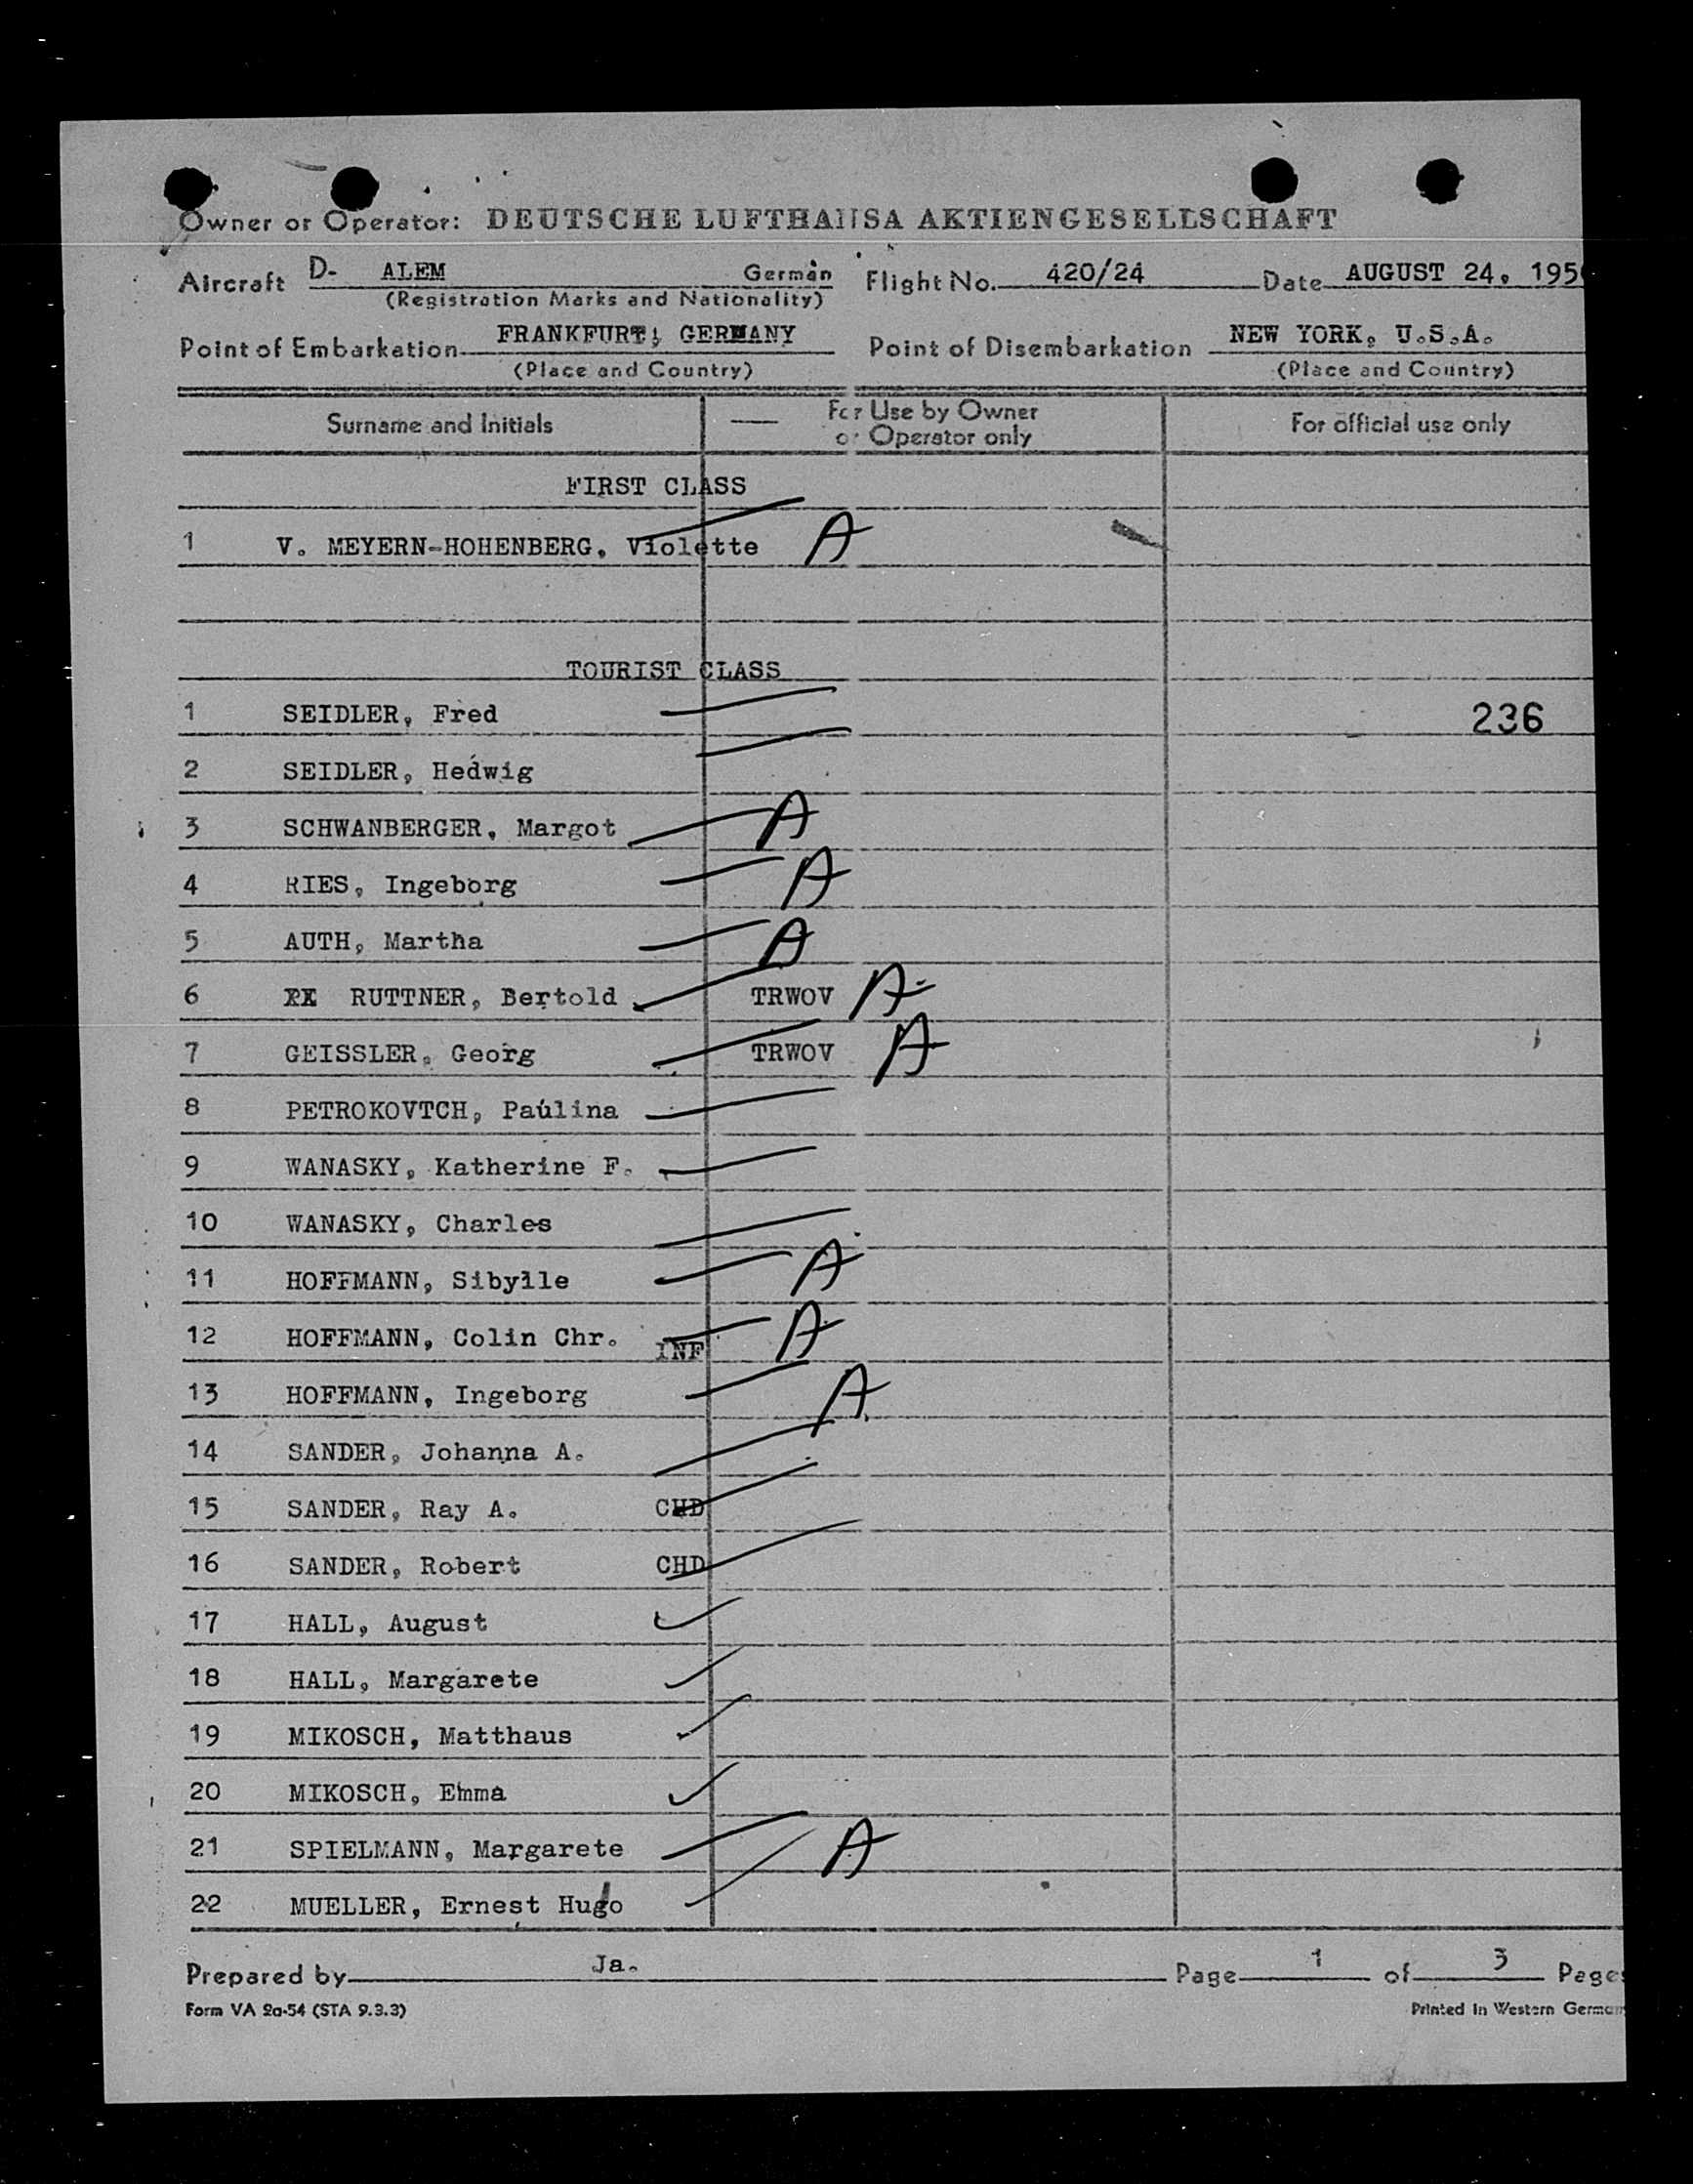 Owner or Operator: DEUTSCHE LUFTHANSA AKTIENGESELLSCHAFT
Aircraft D- ALEM German Flight No. 420/24 Date AUGUST 24, 195
(Registration Marks and Nationality)
Point of Embarkation FRANKFURT, GERMANY Point of Disembarkation NEW YORK, U.S.A.
(Place and Country) (Place and Country)
Surname and Initials — For Use by Owner or Operator only For official use only
FIRST CLASS
1 V. MEYERN-HOHENBERG, Violette A
TOURIST CLASS
1 SEIDLER, Fred 236
2 SEIDLER, Hedwig
3 SCHWANBERGER, Margot A
4 RIES, Ingeborg A
5 AUTH, Martha A
6 RUTTNER, Bertold TRWOV A
7 GEISSLER, Georg TRWOV A
8 PETROKOVTCH, Paulina
9 WANASKY, Katherine F.
10 WANASKY, Charles
11 HOFFMANN, Sibylle A
12 HOFFMANN, Colin Chr. INF A
13 HOFFMANN, Ingeborg A
14 SANDER, Johanna A.
15 SANDER, Ray A. CHD
16 SANDER, Robert CHD
17 HALL, August
18 HALL, Margarete
19 MIKOSCH, Matthaus
20 MIKOSCH, Emma
21 SPIELMANN, Margarete A
22 MUELLER, Ernest Hugo
Prepared by Ja. Page 1 of 3 Pages
Form VA 2a-54 (STA 9.3.3) Printed in Western German